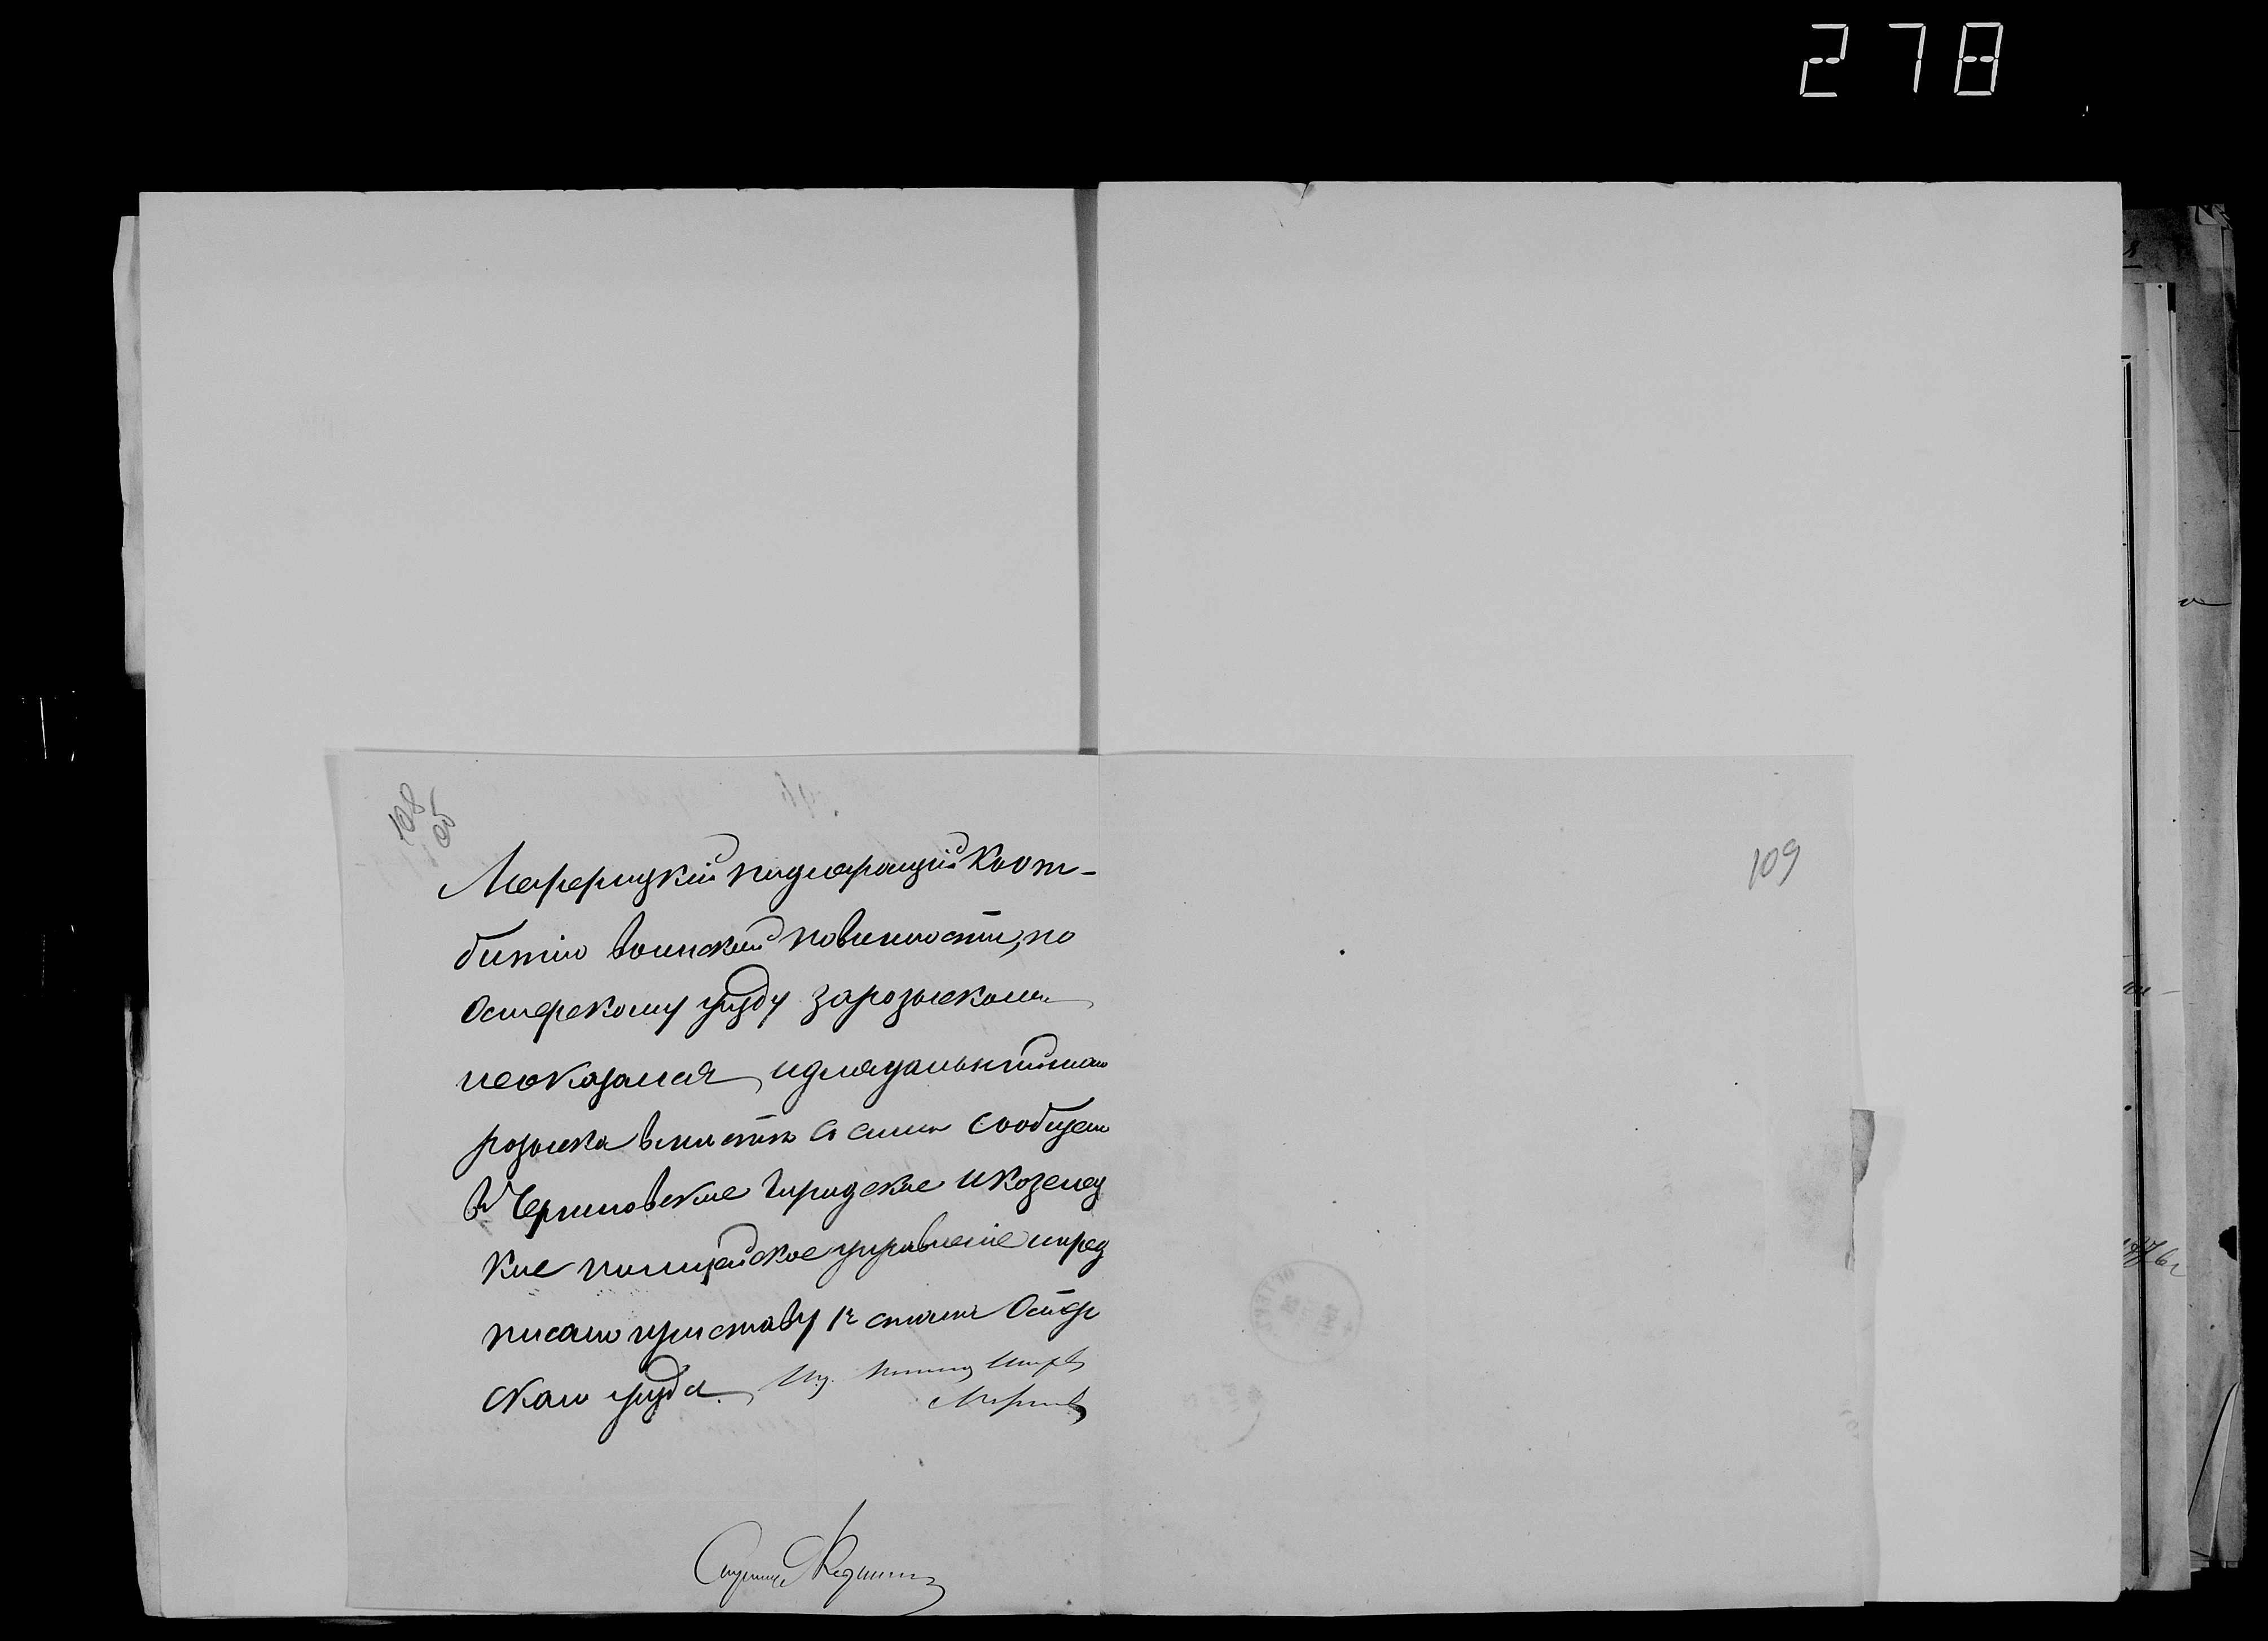 278
108
об
109
подлежащій к от-
бытію воинской повинности, по
Остерскому уезду за розыскомъ
неоказался, и для дальнѣйшаго
розыска вмѣстѣ съ симъ сообщено
въ Черниговское городское и Козелец
кое полицейское управленіе и пред
писано приставу 1го стана Остер
скаго уезда.